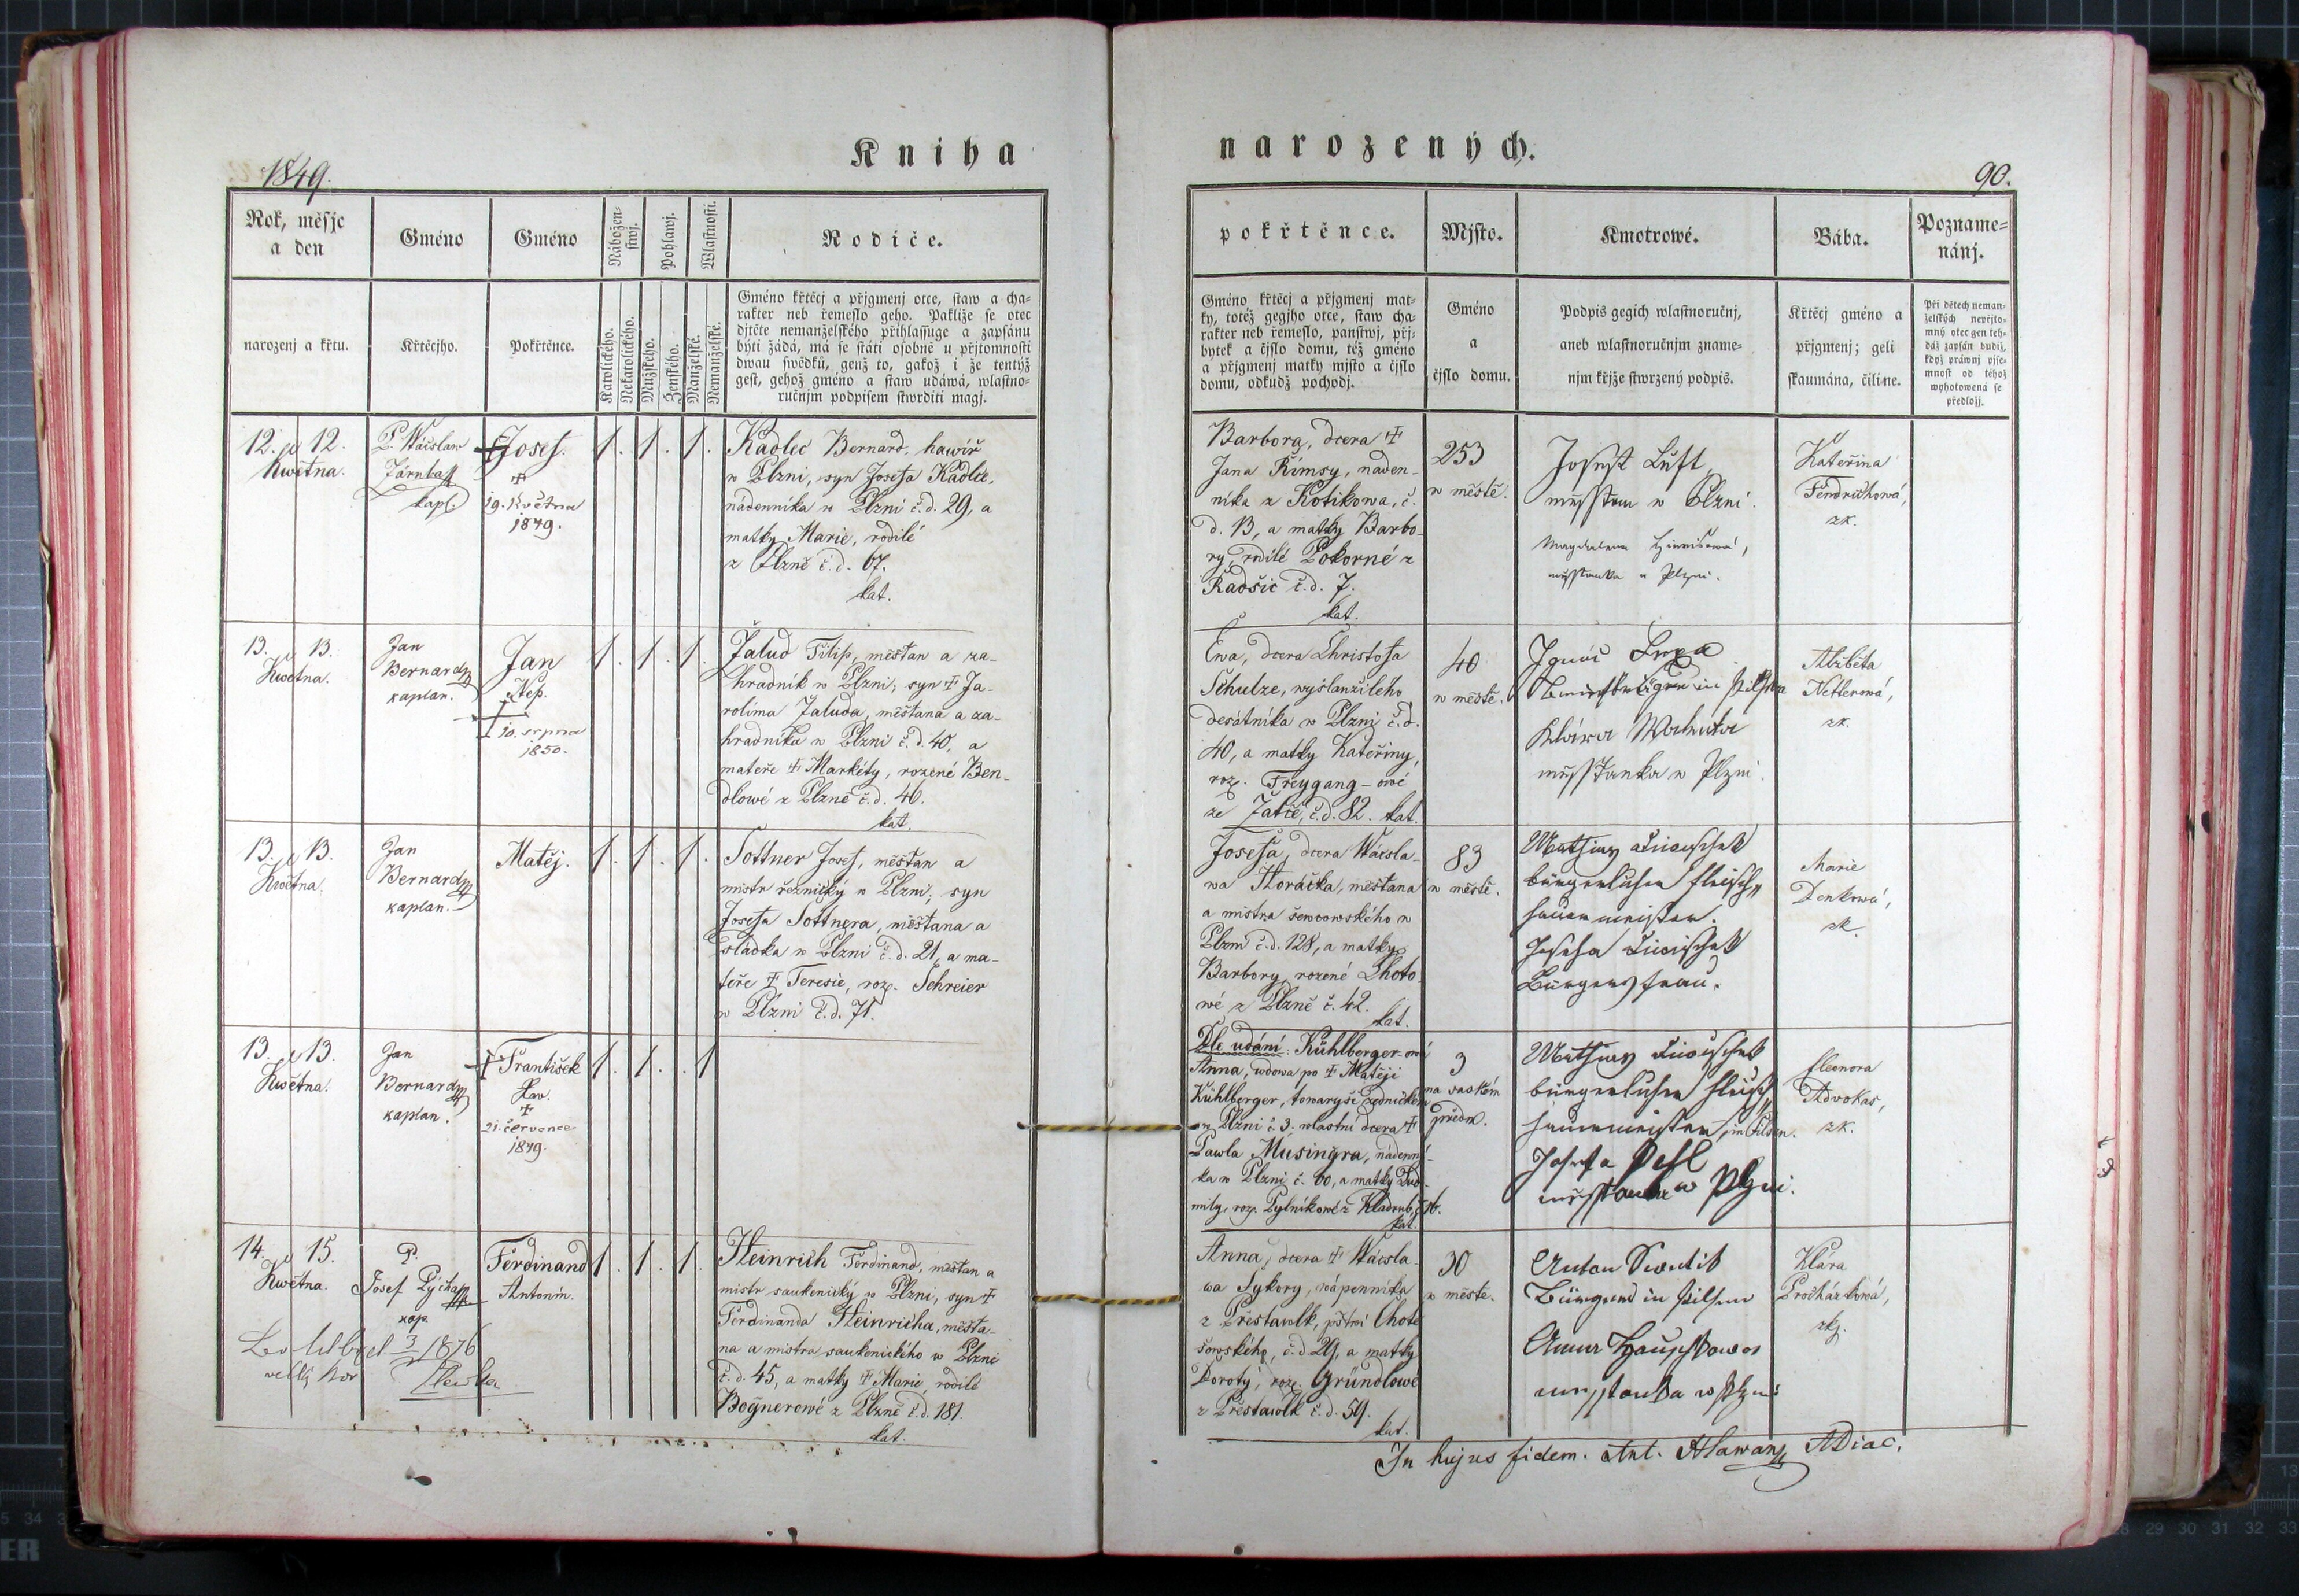 Kniha
narozených.
1849.
90.
Rok, měsjc
a den
Gméno
Gméno
Nábožen-
stwj.
Pohlawj.
Wlastnosti.
Rodiče.
narozenj a křtu.
Křtěcjho.
Pokřtěnce.
Katolického.
Nekatolického.
Mužského.
Ženského.
Manželské.
Nemanželské.
Gméno křtěcj a přjgmenj otce, staw a cha-
rakter neb řemeslo geho. Pakliže se otec
djtěte nemanželského přihlassuge a zapsánu
býti žádá, má se státi osobně u přjtomnosti
dwau swědků, genž to, gakož i že tentýž
gest, gehož gméno a staw udáwá, wlastno-
ručnjm podpisem stwrditi magj.
12. 12.
Kwětna.
P. Wácslaw
kapl.
Josef.
19. Května
1849.
1. 1. 1.
Kadlec Bernard, hawíř
w Plzni, syn Josefa Kadlce,
nádenníka w Plzni č.d. 29, a
matky Marie, rodilé
z Plzně č.d. 67.
kat.
13. 13.
Kwětna.
Jan
Bernard
kaplan.
Jan
Nep.
10. srpna
1850.
1. 1. 1.
Žalud Filip, měšťan a za-
hradník w Plzni; syn † Ja-
rolima Žaluda, měšťana a za-
hradníka w Plzni č.d. 40, a
mateře † Markéty, rozené Ben-
dlowé z Plzně č.d. 46.
kat.
13. 13.
Kwětna.
Jan
Bernard
kaplan.
Matěj.
1. 1. 1.
Sottner Josef, měšťan a
mistr řeznický w Plzni; syn
Josefa Sottnera, měšťana a
sládka w Plzni č.d. 21, a ma-
teře † Teresie, roz. Schreier
w Plzni č.d. 71.
13. 13.
Kwětna.
Jan
Bernard
kaplan.
† František
†
21. července
1849.
1. 1. 1
14. 15.
Kwětna.
P.
Josef Pýcha
kap.
Ferdinand
Antonín.
1. 1. 1.
Heinrich Ferdinand, měšťan a
mistr saukenický w Plzni, syn †
Ferdinanda Heinricha, měšťa-
na a mistra saukenického w Plzni
č.d. 45, a matky † Marie, rodilé
Bognerowé z Plzně č.d. 181.
kat.
3/ 1876
pokřtěnce.
Mjsto.
Kmotrowé.
Bába.
Pozname-
nánj.
Gméno křtěcj a přjgmenj mat-
ky, totéž gegjho otce, staw cha-
rakter neb řemeslo, panstwj, přj-
bytek a čjslo domu, též gméno
a přjgmenj matky mjsto a čjslo
domu, odkudž pochodj.
Gméno
a
čjslo domu.
Podpis gegich wlastnoručnj,
aneb wlastnoručnjm zname-
njm křjže stwrzený podpis.
Křtěcj gméno a
přjgmenj; geli
skaumána, čiline.
Při dětech neman-
želských nepřjto-
mný otec gen teh-
dáž zapsán budiž,
když práwnj pjse-
mnost od téhož
wyhotowená se
předložj.
Barbora, dcera †
Jana Římsy, náden-
níka z Kotikowa, č.
d. 13, a matky Barbo-
ry, rodilé Pokorné z
Radšic č.d. 7.
kat.
253
w městě.
Josef Luft
měsstan w Plzni.
Magdalena
měsstanka w Plzni.
Kateřina
Fendrichowá,
zk.
Ewa, dcera Christofa
Schulze, wyslaužilého
desátníka w Plzni č.d.
40, a matky Kateřiny,
roz. Freygang-owé
ze Žatče, č.d. 82. kat.
40
w městě.
Ignác
in Pilsen
Klára
měsstanka w Plzni.
Alžběta
Netlerowá,
zk.
Josefa, dcera Wácsla-
wa Horáčka, měšťana
a mistra šewcowského w
Plzni č.d. 128, a matky
Barbory, rozené Lhoto-
wé z Plzně č. 42.
kat.
83
w městě.
Mathias
bürgerlicher Fleisch-
hauermeister.
Josefa
Bürgersfrau.
Marie
Denkowá,
zk.
Dle udání: Kühlberger-owá
Anna, wdowa po † Matěji
Kühlberger, towaryši zednickém
w Plzni č. 3. vlastní dcera †
Pawla Musingra, nádenní-
ka w Plzni č. 60, a matky Lud-
mily, roz. Pylníkowé z Kladrub, č. 56.
kat.
3
na saském
předm.
Mathias
bürgerlicher Fleisch-
hauermeister, in Pilsen.
Josefa Pesl
měsstanka w Plzni.
Eleonora
Adwokas,
zk.
Anna, dcera † Wácsla-
wa Sykory, wápenníka
z Přestawlk, pstwí Chote-
šowského, č.d. 29, a matky
Doroty, roz. Gründlowé
z Přestawlk č.d. 59.
kat.
30
w městě.
Anton
Bürger in Pilsen
Anna
měsstanka w Plzni
Klára
Procházkowá,
zk.
In hujus fidem. Ant. Hlawan, ADiac.